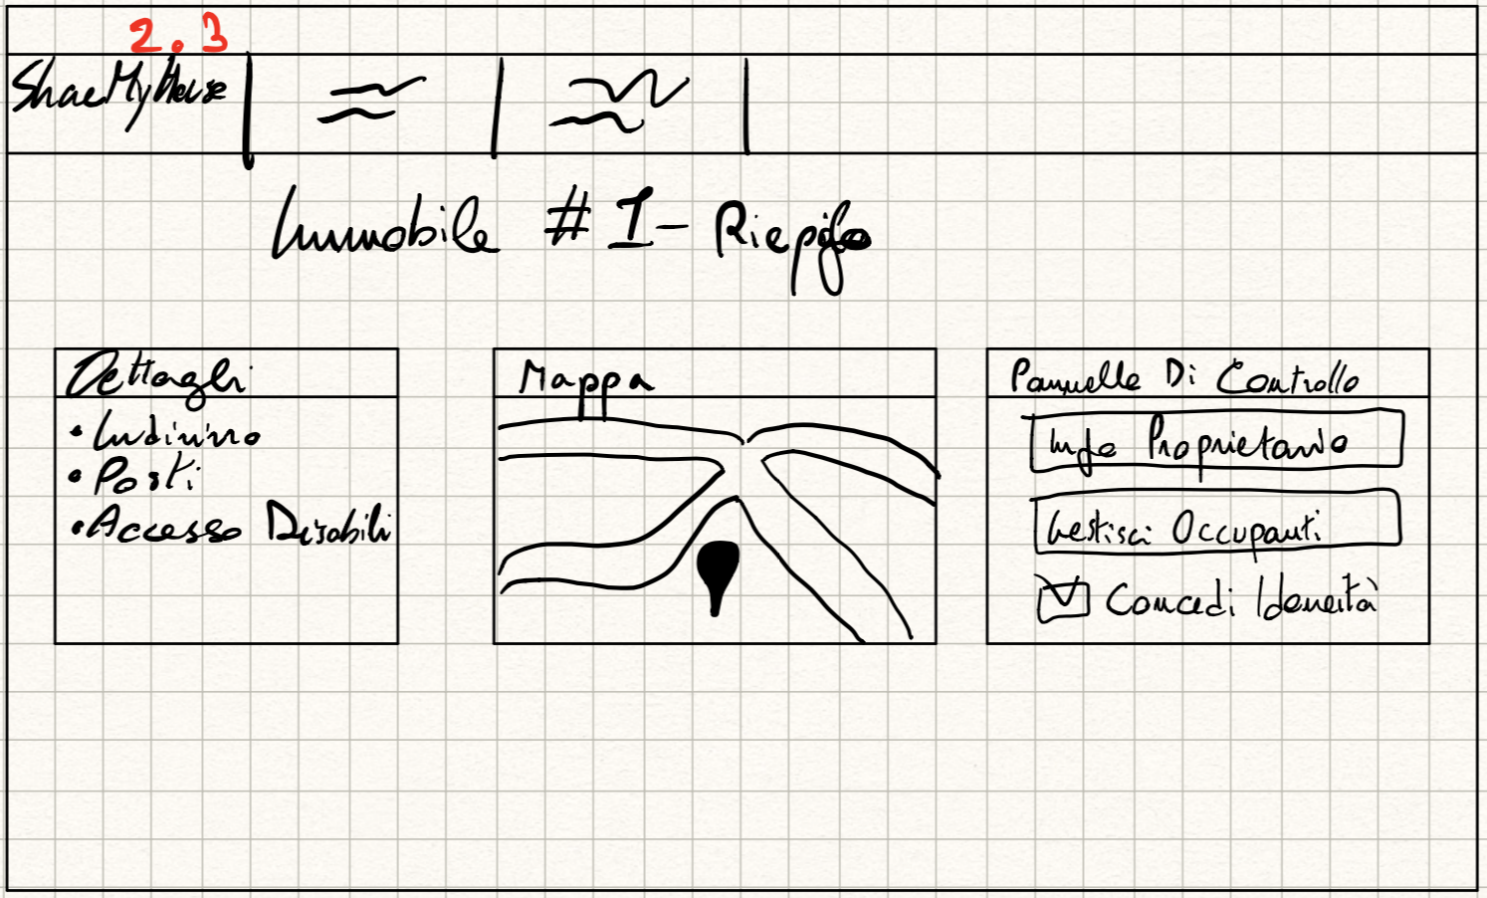 2.3
ShaeMyHouse
Immobile #1 - Riepilogo
Dettagli
• Indirizzo
• Posti
• Accesso Disabili
Mappa
Pannello Di Controllo
Info Proprietario
Gestisci Occupanti
Concedi Idoneità